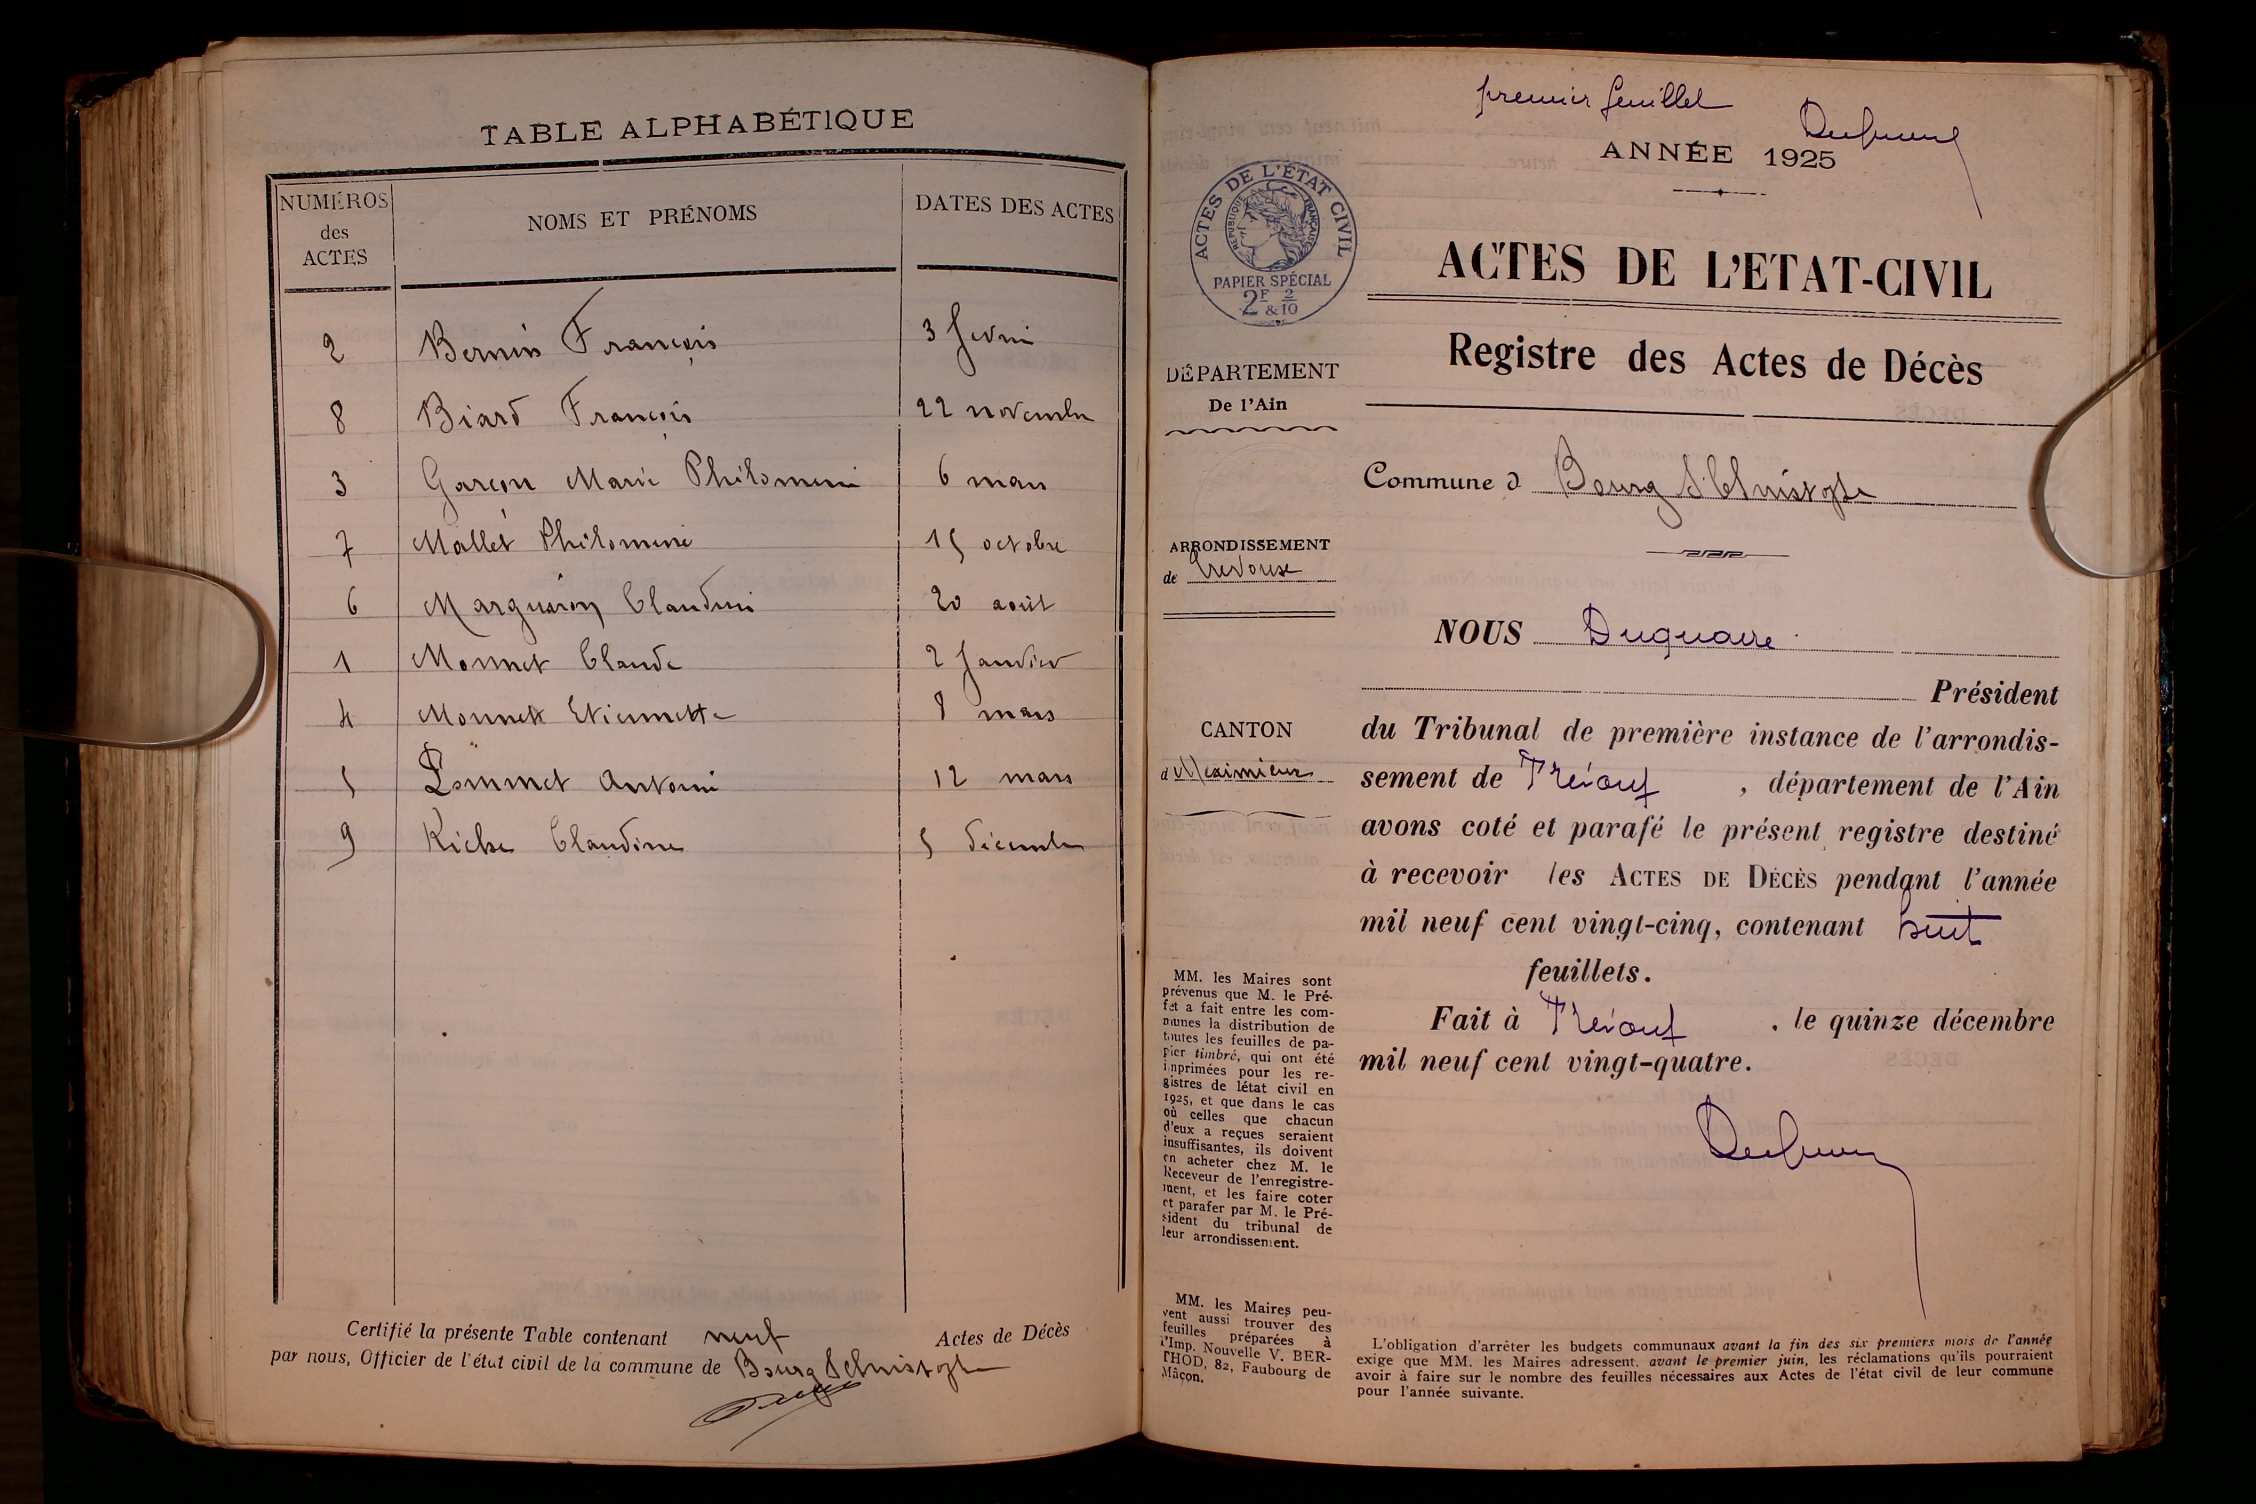 TABLE ALPHABÉTIQUE
NUMÉROS des ACTES NOMS ET PRÉNOMS DATES DES ACTES
2 Bernin François 3 fevrier
8 Biard François 22 novembre
3 Garçon Marie Philomene 6 mars
7 Mallet Philomene 15 octobre
6 Marguaron Claudine 20 août
1 Monnet Claude 2 Janvier
4 Monnet Etiennette 8 mars
5 Pommet Antoine 12 mars
9 Riche Claudine 5 décembre
Certifié la présente Table contenant neuf Actes de Décès
par nous, Officier de l'état civil de la commune de Bourg St Christophe
premier feuillet
ANNÉE 1925
ACTES DE L'ÉTAT CIVIL
RÉPUBLIQUE FRANÇAISE
PAPIER SPÉCIAL
2F & 2/10
ACTES DE L'ETAT-CIVIL
Registre des Actes de Décès
DÉPARTEMENT
De l'Ain
Commune d Bourg St Christophe
ARRONDISSEMENT
de Trevoux
NOUS Duquaire
Président
CANTON
d Meximieux
du Tribunal de première instance de l'arrondis-
sement de Trévoux, département de l'Ain
avons coté et parafé le présent registre destiné
à recevoir les ACTES DE DÉCÈS pendant l'année
mil neuf cent vingt-cinq, contenant huit
feuillets.
Fait à Trévoux, le quinze décembre
mil neuf cent vingt-quatre.
MM. les Maires sont
prévenus que M. le Pré-
fet a fait entre les com-
munes la distribution de
toutes les feuilles de pa-
pier timbré, qui ont été
imprimées pour les re-
gistres de létat civil en
1925, et que dans le cas
où celles que chacun
d'eux a reçues seraient
insuffisantes, ils doivent
en acheter chez M. le
Receveur de l'enregistre-
ment, et les faire coter
et parafer par M. le Pré-
sident du tribunal de
leur arrondissement.
MM. les Maires peu-
vent aussi trouver des
feuilles préparées à
l'Imp. Nouvelle V. BER-
THOD, 82, Faubourg de
Mâcon.
L'obligation d'arrêter les budgets communaux avant la fin des six premiers mois de l'année
exige que MM. les Maires adressent, avant le premier juin, les réclamations qu'ils pourraient
avoir à faire sur le nombre des feuilles nécessaires aux Actes de l'état civil de leur commune
pour l'année suivante.